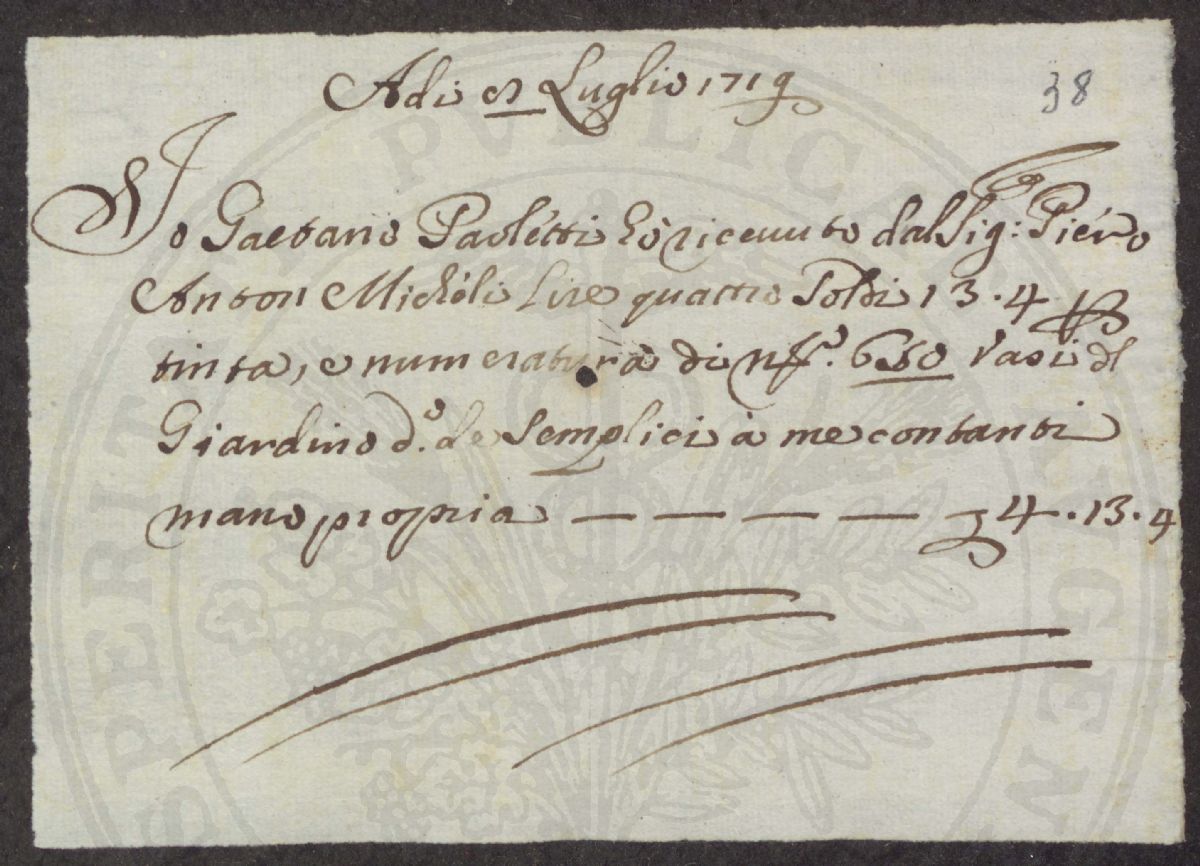 Adi Luglio 1719
38
Io Gaetano Paoletti hò riceuuto dal Sig: Piéro
Anton Michéli Lire quattro Soldi 13.4 p
tinta, e numeratura di 650 Vasi dl
Giardino d.º de Semplici à me contanti
mano propria — — — — 4.13.4